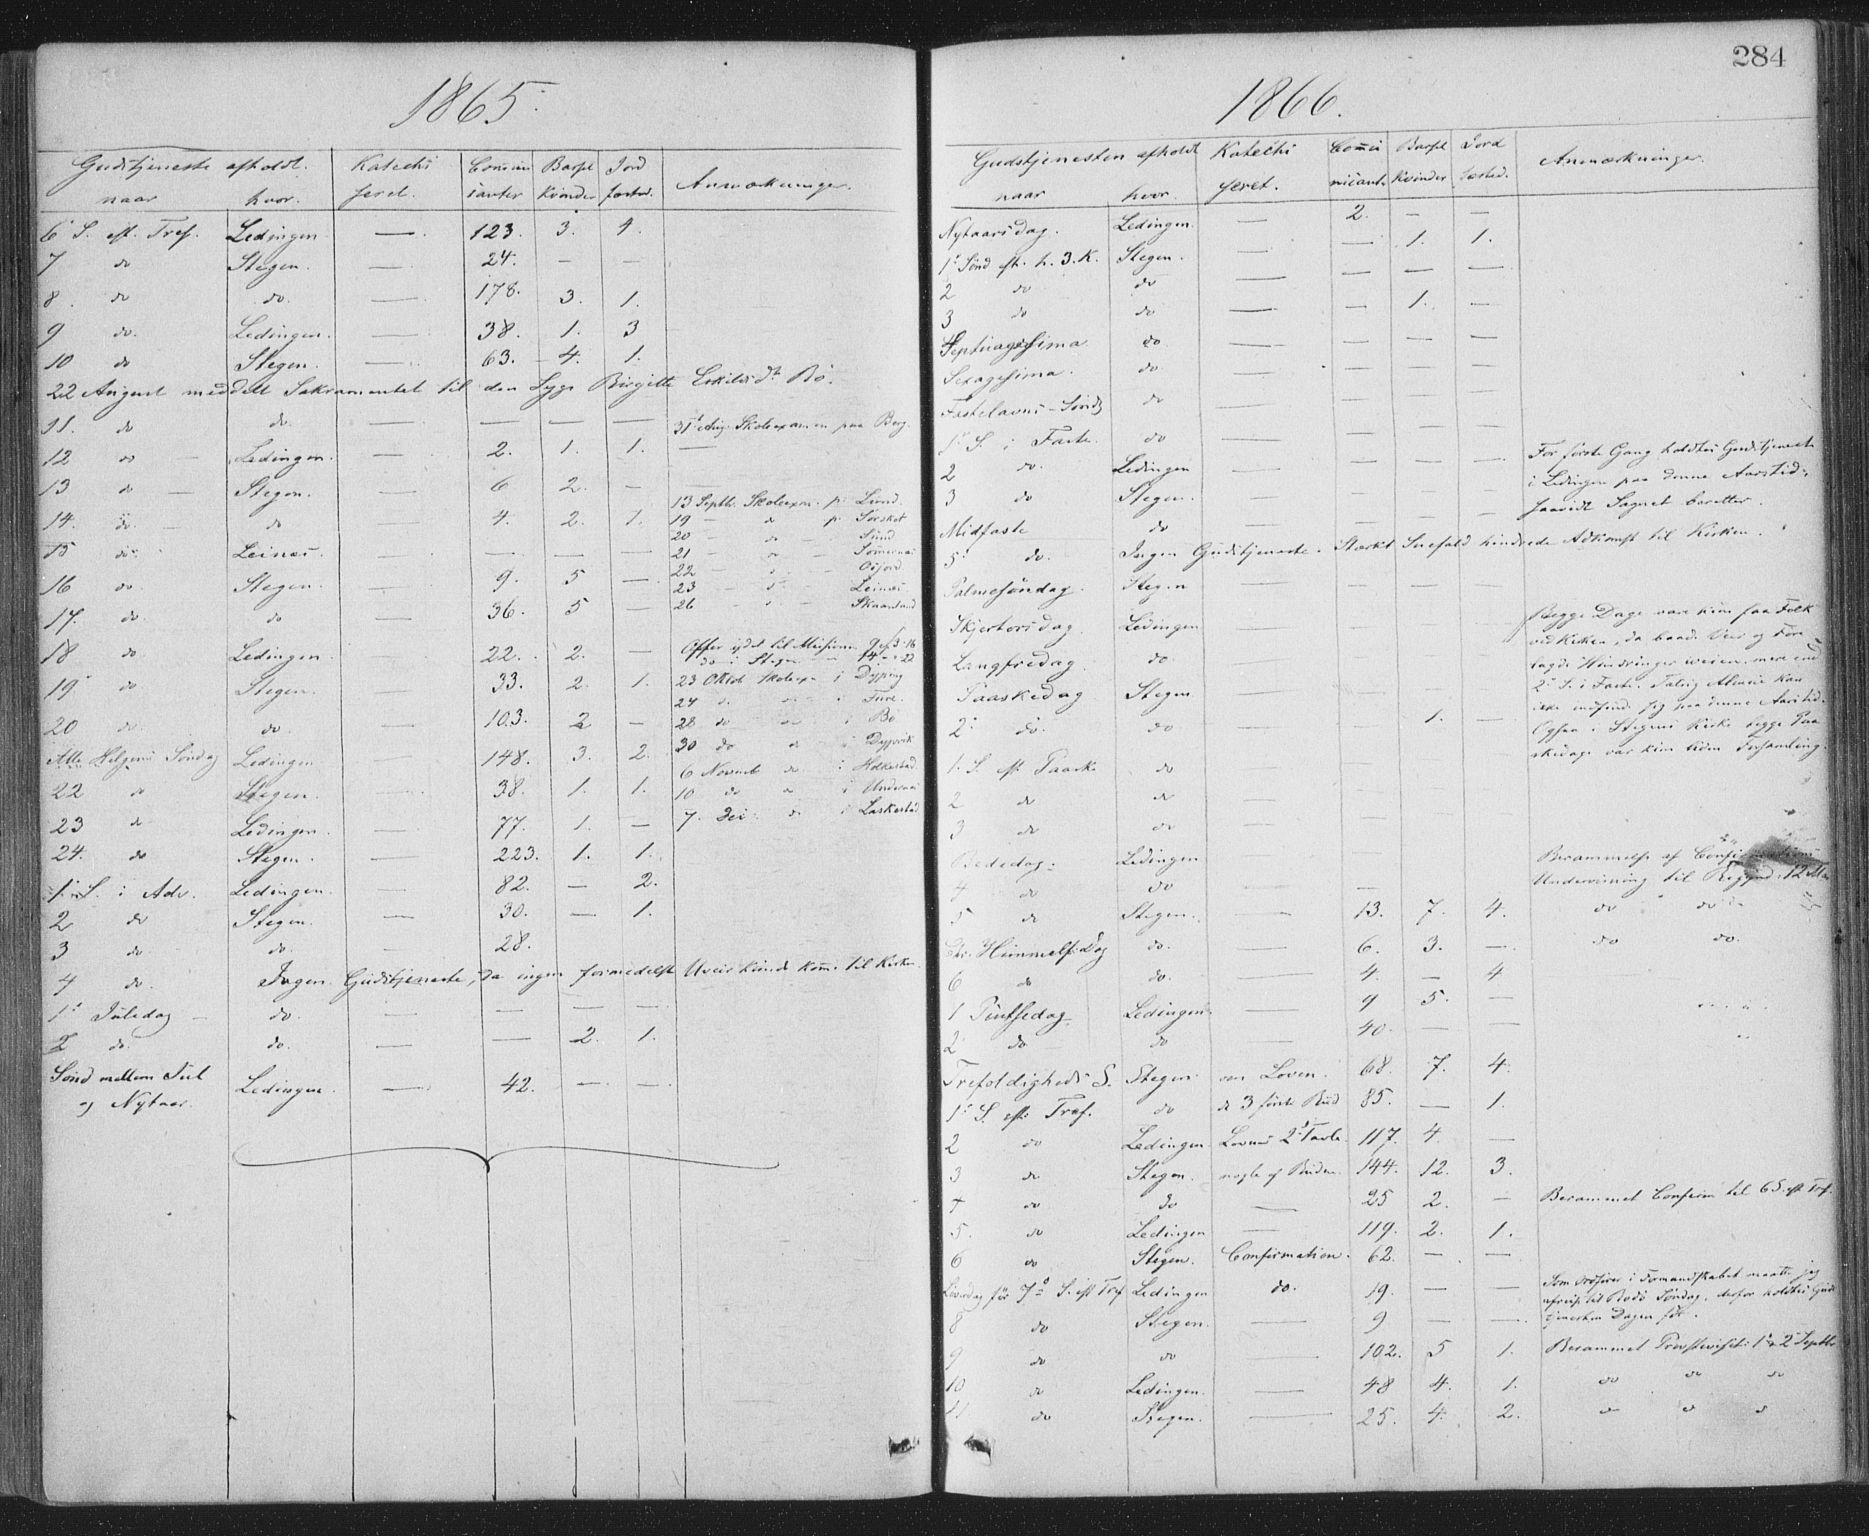 284
1865.
Gudstjeneste afholdt. Katechi Commu Barsel Jord Anmærkninger.
naar hvor. seret. icanter Kvinder fæsted.
6 S. eft. Tref. Ledingen — 123. 3. 4.
7 do Stegen. — 24. — —
8. do do. — 178. 3. 1.
9 do. Ledingen. — 38. 1. 3
10 do Stegen. — 63. 4. 1.
22 August meddelt Sakramentet til den syge Birgitte Eskilsd. Bö.
11. do do. — — — — 31 Aug. Skoleexamen paa Berg.
12 do — Ledingen. — 2. 1. 1. —
13 do — Stegen. — 6 2. — 13 Septbr. Skoleexm. p.
14. do. — do — 4. 2. 1. 19 — do p.
20 — do
15 do. Leines. — — — — 21 — do
22
16 do. Stegen. — 9. 5 — 23 Leines
17. do. do — 36. 5 — 26 Skaanland
18 do. Ledingen — 22. 2. — Offer ydet til Missionen
do i Stegen
19 do Stegen. — 33. 2. 1. 23 Oktob. Skoleex. i Dyping
24 Fure.
20 do. do. — 103. 2 — 28 do Bö
Alle Helgens Söndag Ledingen — 148. 3. 2. 30 do do i Dypvik
22 do Stegen. — 38. 1. 1. 6 Novemb do i Holkestad.
10 do do i
23 do Ledingen. — 77. 1. — 7. Dec. do i Laskestad
24. do Stegen. — 223. 1. 1.
1. S. i Adv. Ledingen. — 82. — 2.
2 do Stegen. — 30. — 1.
3 do do. — 28.
4 do. Ingen Gudstjeneste, da ingen formedelst Uveir kunde kom. til Kirken.
1. Juledag — do. — — — —
2 do. do. — — 2. 1.
Sönd mellem Jul
og Nytaar. Ledingen. — 42. — —
1866.
Gudstjenesten afholdt Katechi Commu Barsel Jord Anmærkninger.
naar hvor. seret. nicant. Kvinder fæsted.
Nytaarsdag. Ledingen. — 2. — —
1. Sönd eft. h. 3. K. Stegen. — — 1. 1.
2 do do — — — —
3 do do — — 1. —
Septuagesima do — — — —
Sexagesima. do. — — — —
Fastelavns-Sönd. do — — — —
1. S. i Faste. do — — — —
2 do. Ledingen — — — — For förste Gang holdtes Gudstjeneste
i Ledingen paa denne Aarstid,
3 do Stegen. — — — — saavidt Sagnet beretter.
Midfaste do — — — —
5 do. Ingen Gudstjeneste. Stærkt Snefald hindrede Adkomst til Kirken.
Palmesöndag. Stegen — — — —
Skjertorsdag Ledingen — — — — Begge Dage vare kun faa Folk
ved Kirken, da baade Veir og Före
Langfredag. do. — — — — lagde Hindringer
Paaskedag Stegen — — — — 2. S. i Faste.
2. do. do — — 1. — Ogsaa i Stegens Kirke begge Paa
skedage var kun liden Forsamling.
1. S. eft Paaske do — — — —
2 do do — — — —
3 do do — — — —
Bededag. Ledingen — — — — Berammelse af Confirmations
4 do do — — Undervisning til
5 do Stegen. — 13. 7. 4. do do
Chr. Himmelf. Dag do. — 6. 3. — do do.
6 do do. — 4. — 4
1 Pintsedag. Ledingen. — 9 5. —
2 do do — 40. — —
Trefoldigheds S. Stegen. om Loven. 68. 7. 4.
1. S. eft. Tref. do de 3 förste Bud 85. — 1.
2 do Ledingen. Lovens 2 Tavle. 117. 4. —
3 do Stegen. nogle af Budene. 144. 12. 3.
4 do do — 25 2. — Berammet Confirm til 6 S. eft Tref.
5. do Ledingen — 119. 2. 1.
6 do Stegen. Confirmation. 62. — —
Löverdag för 7 S. eft Tref Ledingen do. 19. — — Som i Formandskabet maatte jeg
afreise til Bodö Söndag, derfor holdtes Gud
8 do Stegen. — 9 — — tjenesten Dagen för.
9 do do — 102. 5 1. Berammet Provstevisit. 1 & 2 Septbr
10 do Ledingen. — 48 4. 1. do do do
11 do Stegen. — 25. 4. 2.